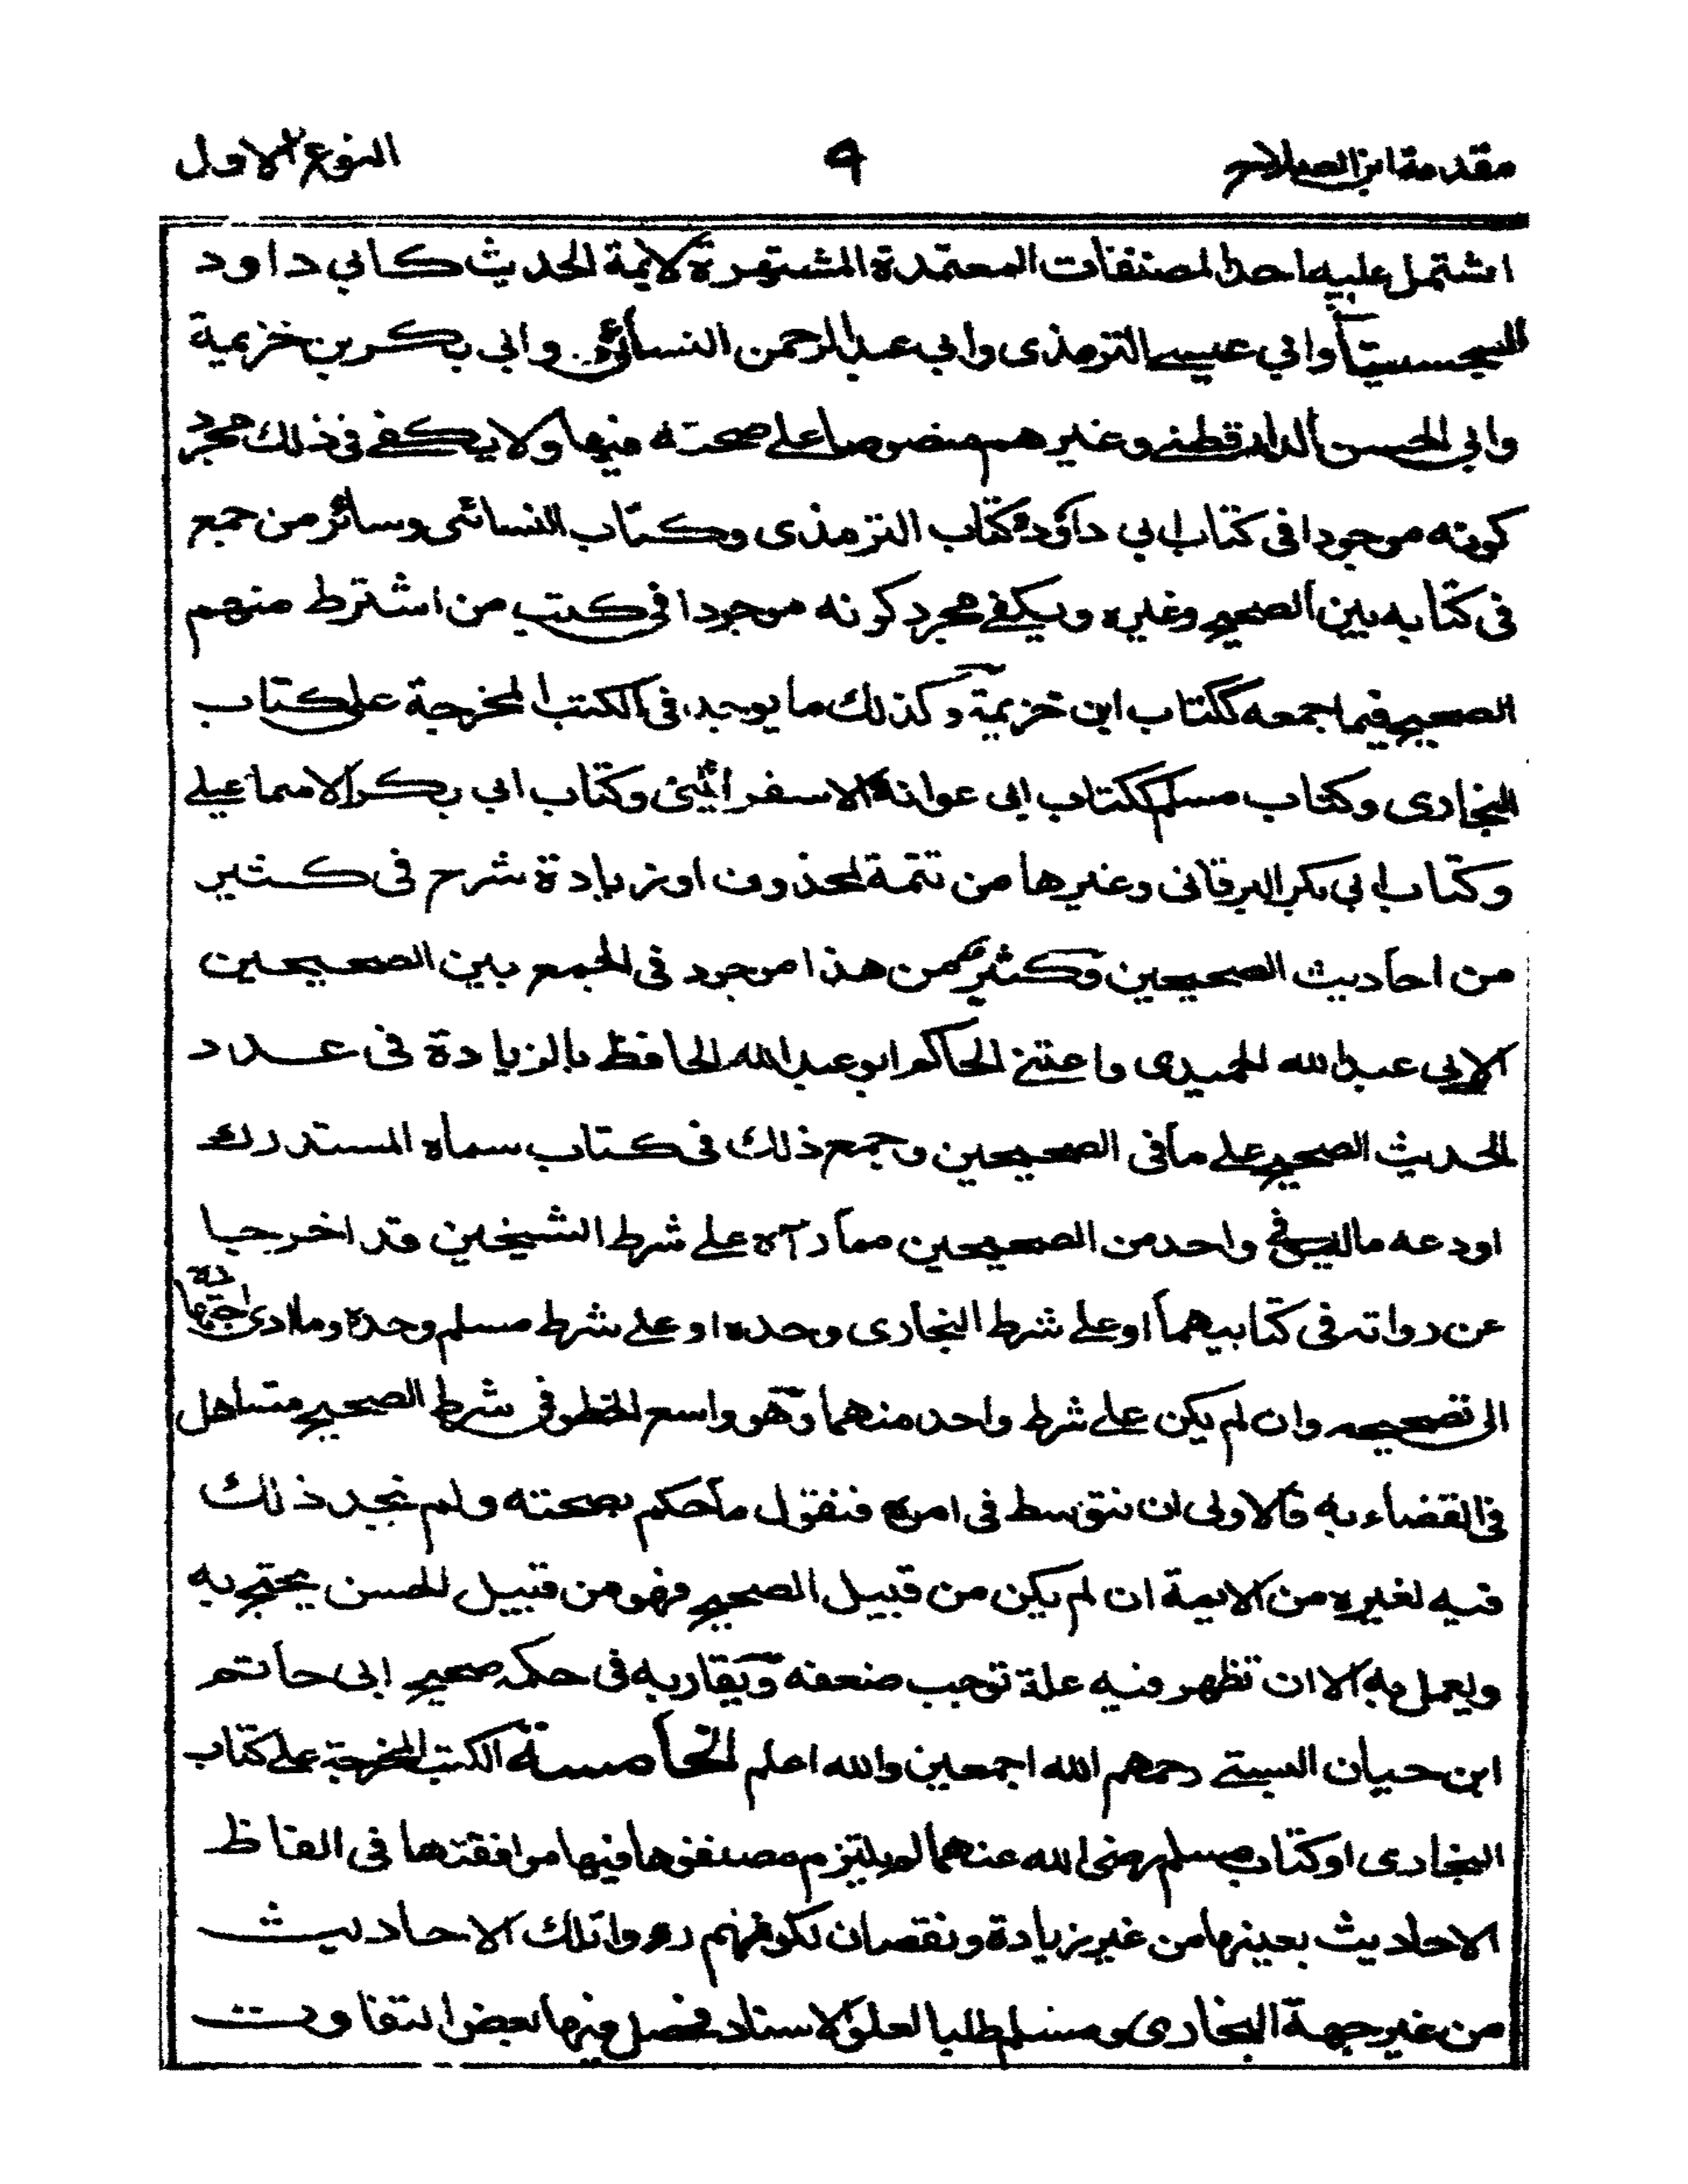 مقدمة ابن الصلاح ٩ النوع الاول
اشتمل عليه احد المصنفات المعتمدة المشتهرة لائمة الحديث كابي داود
السجستاني وابي عيسى الترمذي وابي عبد الرحمن النسائي وابي بكر بن خزيمة
وابي الحسن الدارقطني وغيرهم منصوصا على صحته فيها ولا يكفي في ذلك مجرد
كونه موجودا في كتاب ابي داؤد وكتاب الترمذى وكتاب النسائى وسائر من جمع
فى كتابه بين الصحيح وغيره ويكفي مجرد كونه موجودا في كتب من اشترط منهم
الصحيح فيما جمعه ككتاب ابن خزيمة وكذلك ما يوجد في الكتب المخرجة على كتاب
البخارى وكتاب مسلم ككتاب ابى عوانة الاسفرائينى وكتاب ابى بكر الاسماعيلي
وكتاب ابي بكر البرقانى وغيرها من تتمة لمحذوف او زيادة شرح فى كثير
من احاديث الصحيحين وكثير من هذا موجود فى الجمع بين الصحيحين
لابي عبد الله الحميدى واعتنى الحاكم ابو عبد الله الحافظ بالزيادة فى عدد
الحديث الصحيح على ما فى الصحيحين وجمع ذلك فى كتاب سماه المستدرك
اودعه ما ليس في واحد من الصحيحين مما رآه على شرط الشيخين قد اخرجا
عن رواته فى كتابيهما او على شرط البخارى وحده او على شرط مسلم وحدة وما ادى اجتهاده
الى تصحيحه وان لم يكن على شرط واحد منهما وهو واسع الخطو فى شرط الصحيح متساهل
فى القضاء به فالاولى ان نتوسط فى امره فنقول ما حكم بصحته ولم نجد ذلك
فيه لغيره من الايمة ان لم يكن من قبيل الصحيح فهو من قبيل الحسن يحتج به
ويعمل به الا ان تظهر فيه علة توجب ضعفه ويقاربه فى حكمه صحيح ابى حاتم
ابن حبان البستي رحمهم الله اجمعين والله اعلم الخامسة الكتب المخرجة على كتاب
البخارى او كتاب مسلم رضى الله عنهما لم يلتزم مصنفوها فيها موافقتها فى الفاظ
الاحاديث بعينها من غير زيادة ونقصان لكونهم رووا تلك الاحاديث
من غير جهة البخارى ومسلم طلبا لعلو الاسناد فحصل فيها بعض التفاوت